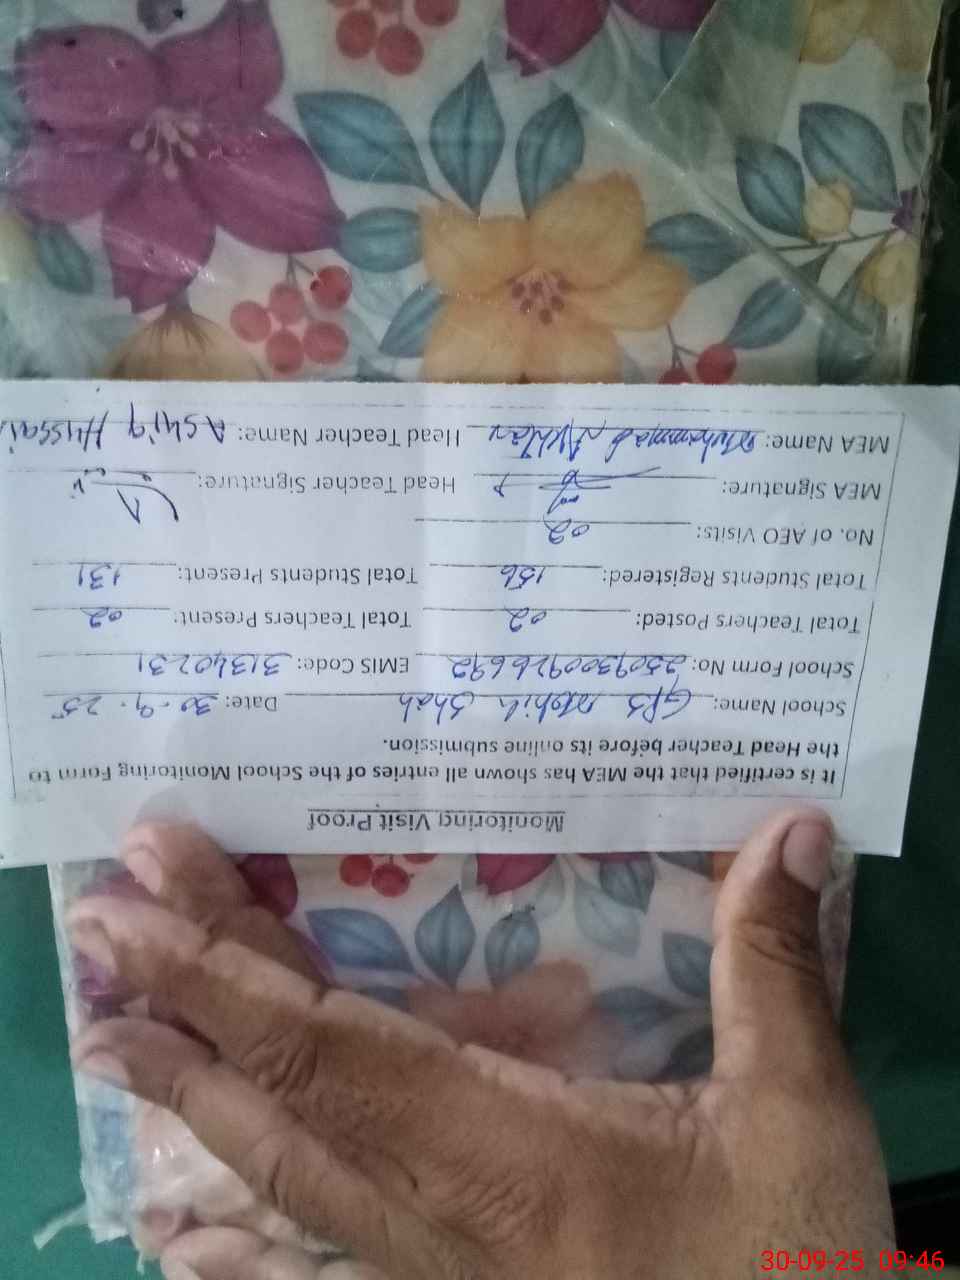 Monitoring Visit Proof
It is certified that the MEA has shown all entries of the School Monitoring Form to
the Head Teacher before its online submission.
School Name: GPS Mohib Shah Date: 30-9-25
School Form No: 2509300926692 EMIS Code: 31340231
Total Teachers Posted: 02 Total Teachers Present: 02
Total Students Registered: 156 Total Students Present: 131
No. of AEO Visits: 02
MEA Signature: Head Teacher Signature:
MEA Name: Muhammad Akhtar Head Teacher Name: Ashiq Hussai
30-09-25 09:46